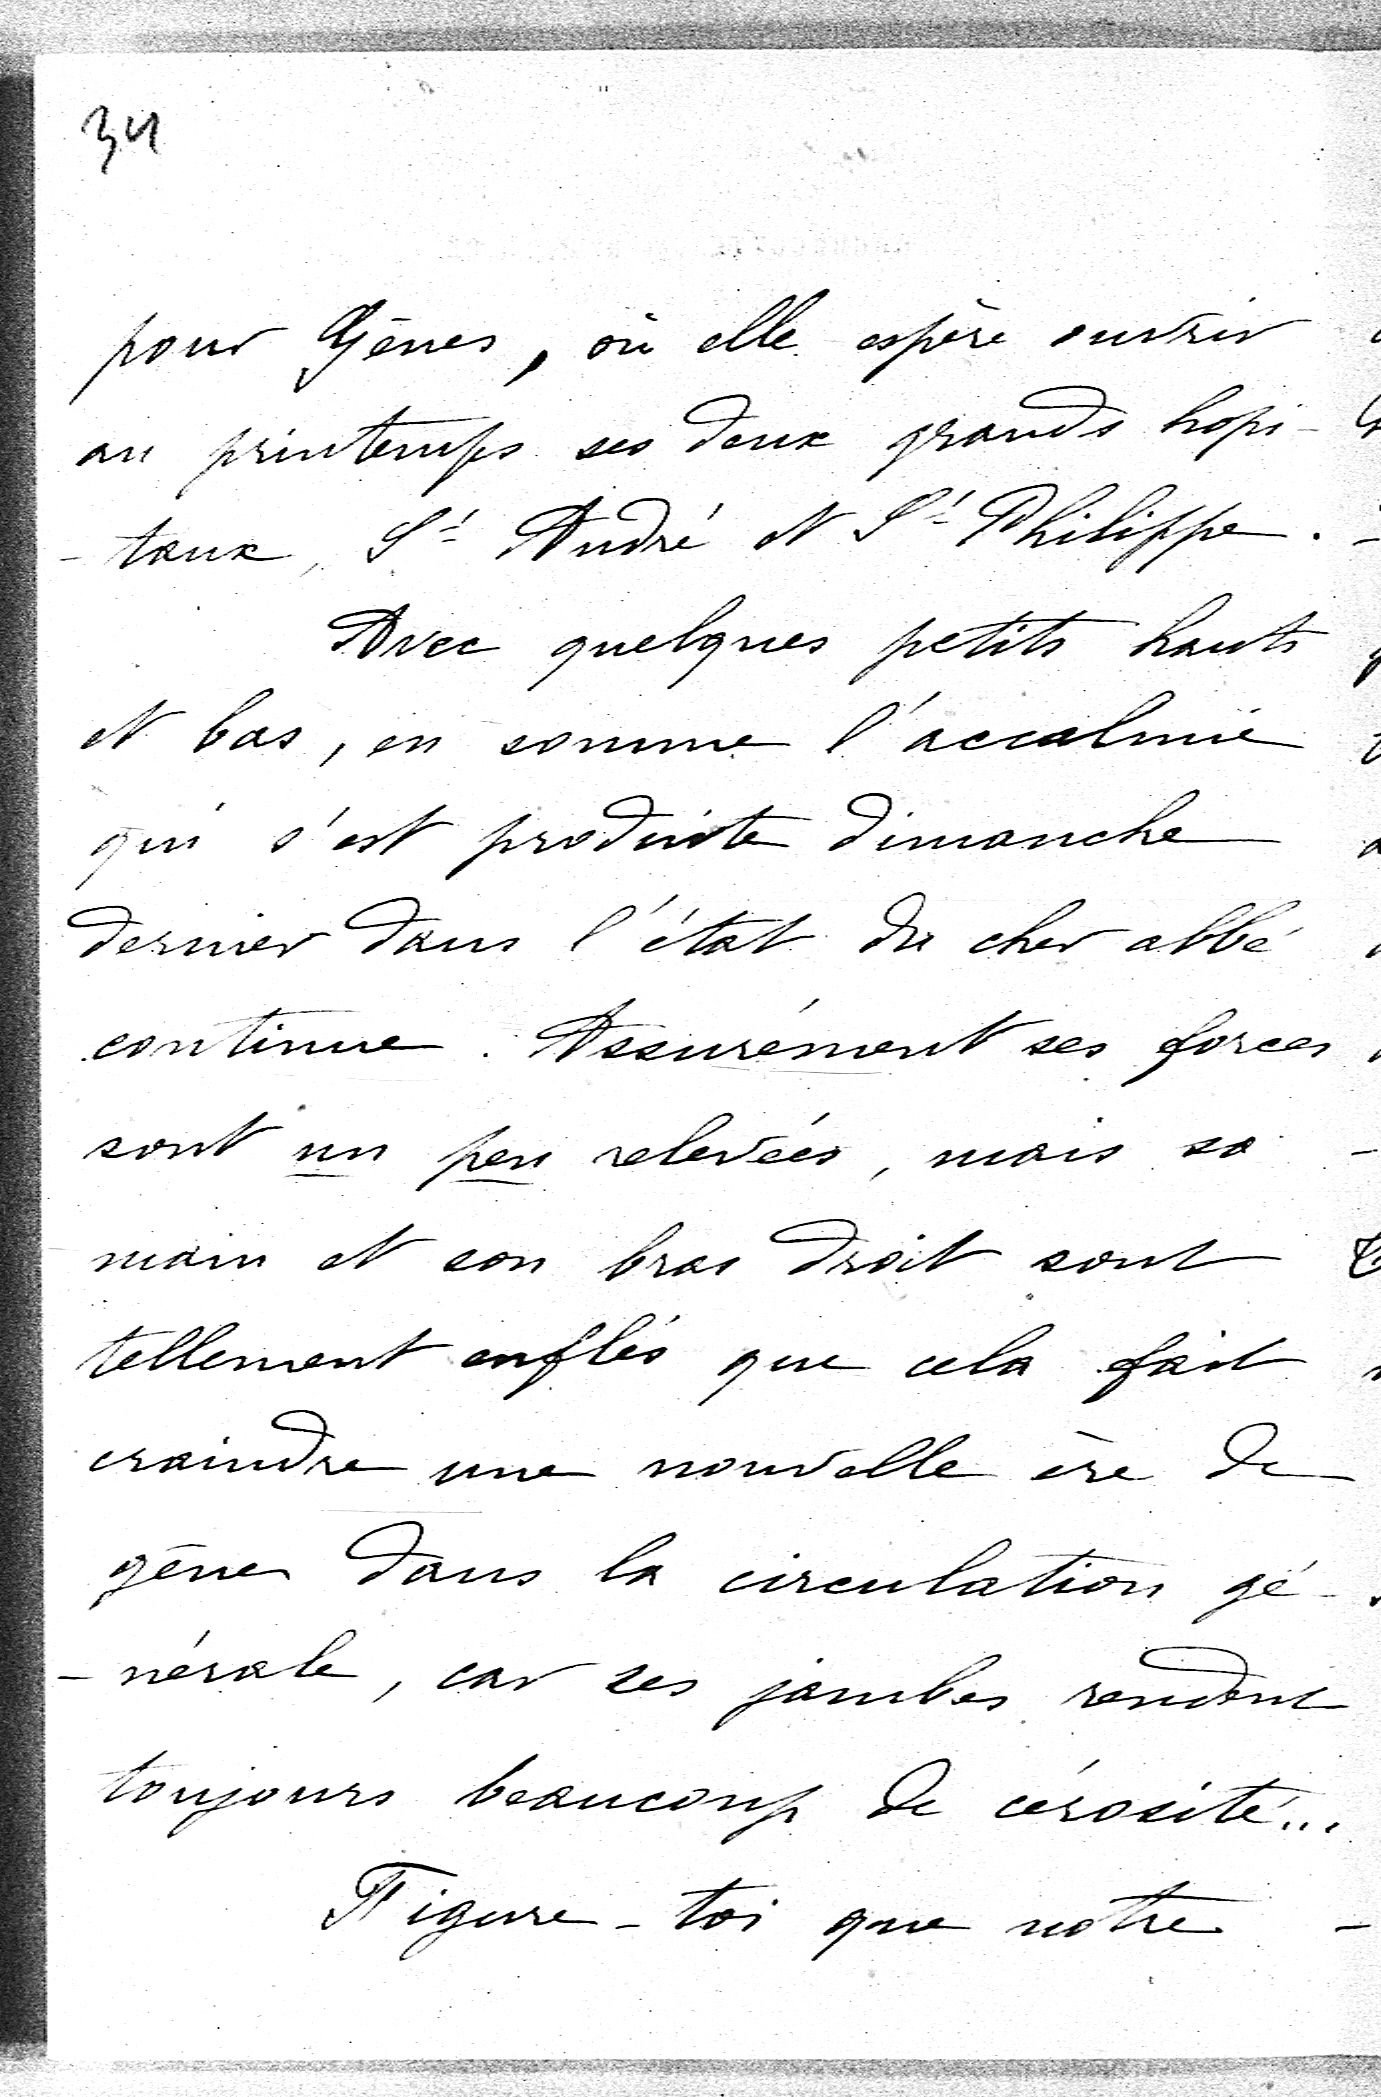 34
pour Gênes, où elle espère ouvrir
au printemps ses deux grands hopi-
-taux, St André et St Philippe.
Avec quelques petits hauts
et bas, en somme l'accalmie
qui s'est produite dimanche
dernier dans l'état du cher abbé
continue. Assurément ses forces
sont un peu relevées, mais sa
main et son bras droit sont
tellement enflés que cela fait
craindre une nouvelle ère de
gêne dans la circulation gé-
-nérale, car ses jambes rendent
toujours beaucoup de cérosité...
Figure-toi que notre